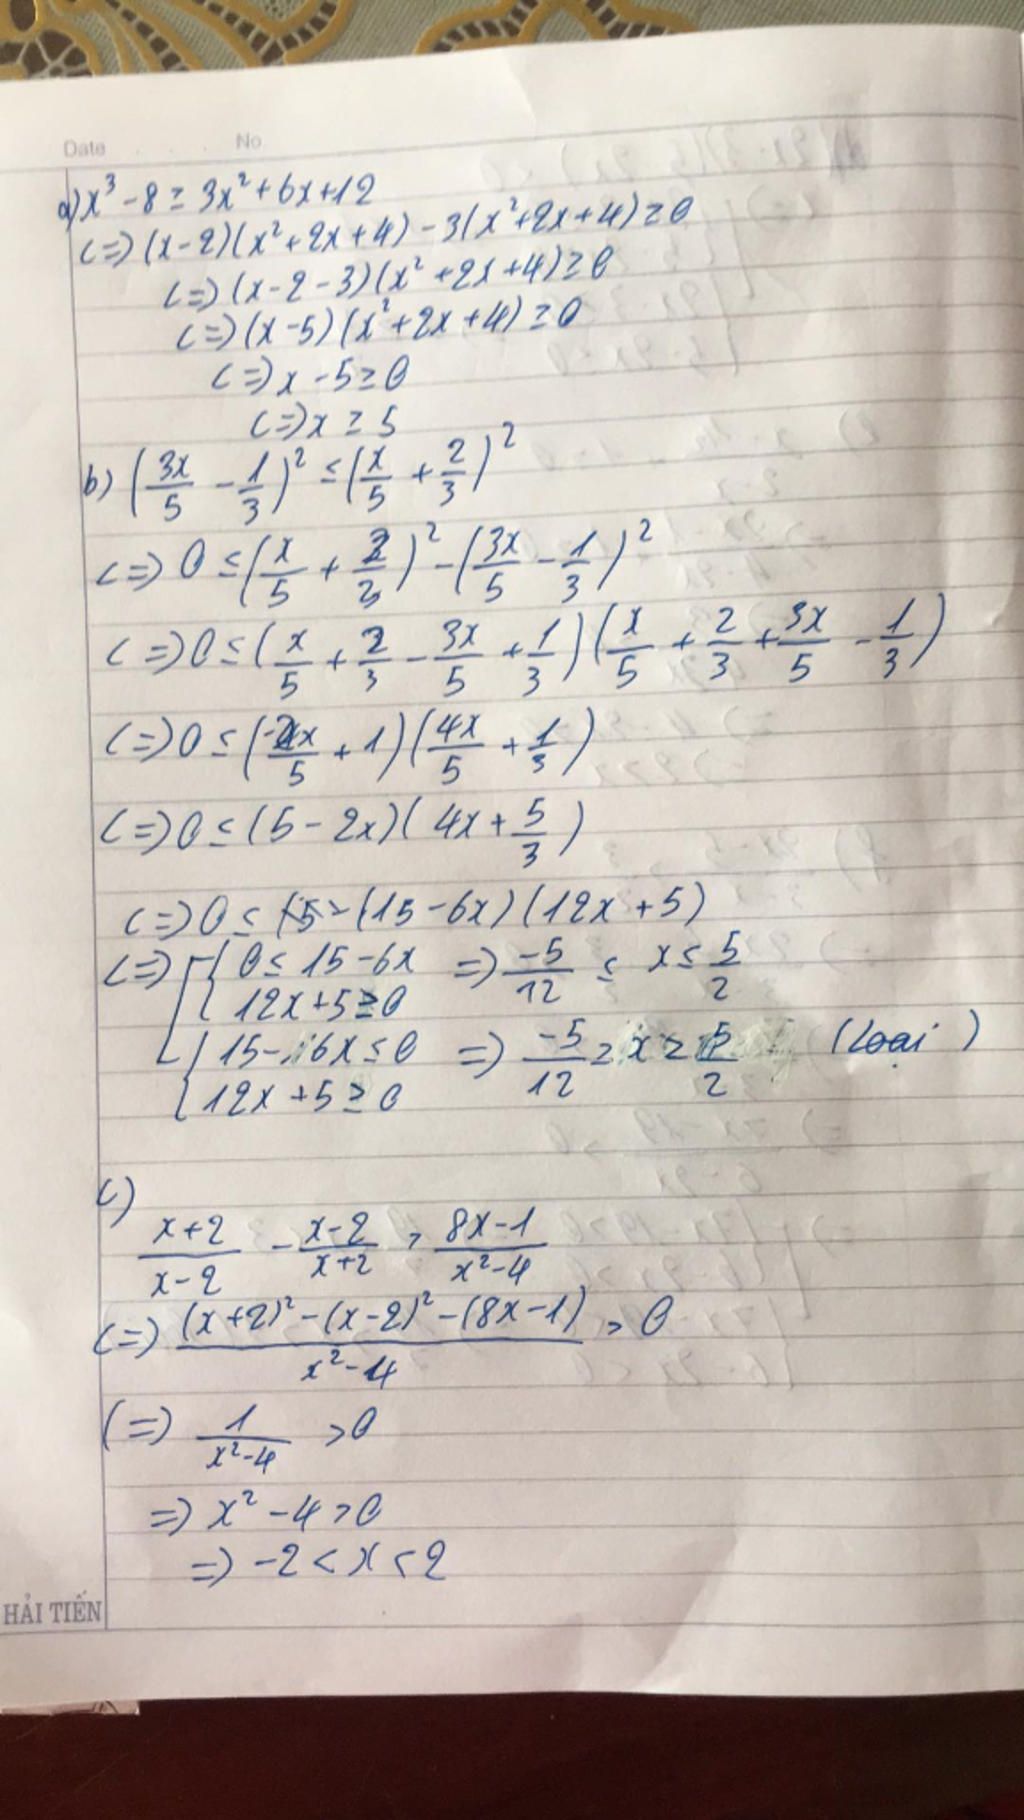 Date No
a) x³ - 8 ≥ 3x² + 6x + 12
<=> (x-2)(x² + 2x + 4) - 3(x² + 2x + 4) ≥ 0
<=> (x - 2 - 3)(x² + 2x + 4) ≥ 0
<=> (x - 5)(x² + 2x + 4) ≥ 0
<=> x - 5 ≥ 0
<=> x ≥ 5
b) (3x/5 - 1/3)² ≤ (x/5 + 2/3)²
<=> 0 ≤ (x/5 + 2/3)² - (3x/5 - 1/3)²
<=> 0 ≤ (x/5 + 2/3 - 3x/5 + 1/3)(x/5 + 2/3 + 3x/5 - 1/3)
<=> 0 ≤ (-2x/5 + 1)(4x/5 + 1/3)
<=> 0 ≤ (5 - 2x)(4x + 5/3)
<=> 0 ≤ (15 - 6x)(12x + 5)
<=> [ { 0 ≤ 15 - 6x => -5/12 ≤ x ≤ 5/2
12x + 5 ≥ 0
{ 15 - 6x ≤ 0 => -5/12 ≥ x ≥ 5/2 (Loại)
12x + 5 ≥ 0
c)
(x+2)/(x-2) - (x-2)/(x+2) > (8x-1)/(x²-4)
<=> ((x+2)² - (x-2)² - (8x-1))/(x²-4) > 0
(=> 1/(x²-4) > 0
=> x² - 4 > 0
=> -2 < x < 2
HẢI TIẾN